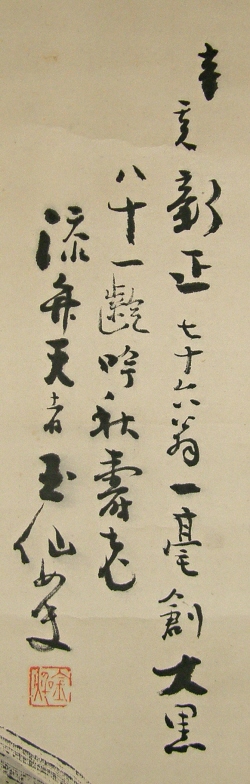 辛亥新正七十六翁一毫創大黒
八十一齢吟秋寿老
添弁天者玉仙女史